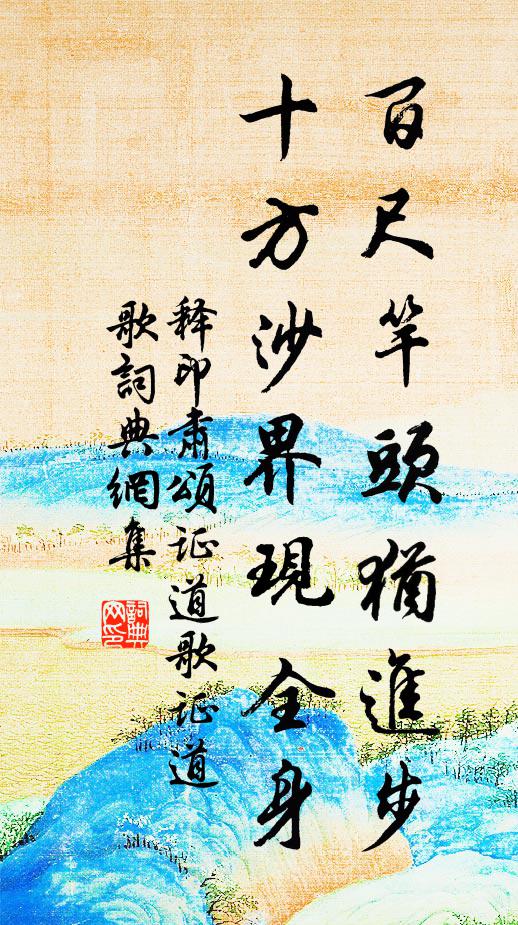 百尺竿頭猶進步
十方沙界現全身
释印肅頌证道歌证道
歌詞典網集
詞典
网印